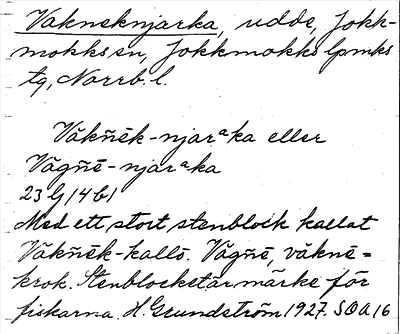 Vakneknjarka, udde, Jokk-
mokks sn, Jokkmokks lpmks
tg, Norrb. l.
Vākn̄ēk-njarᵃka eller
Vāgn̄ē-njarᵃka
23 G (4 b)
Med ett stort stenblock kallat
Vākn̄ēk-kallō. Vāgn̄ē, vāknē =
krok. Stenblocket är märke för
fiskarna. H. Grundström 1927. SOA 16